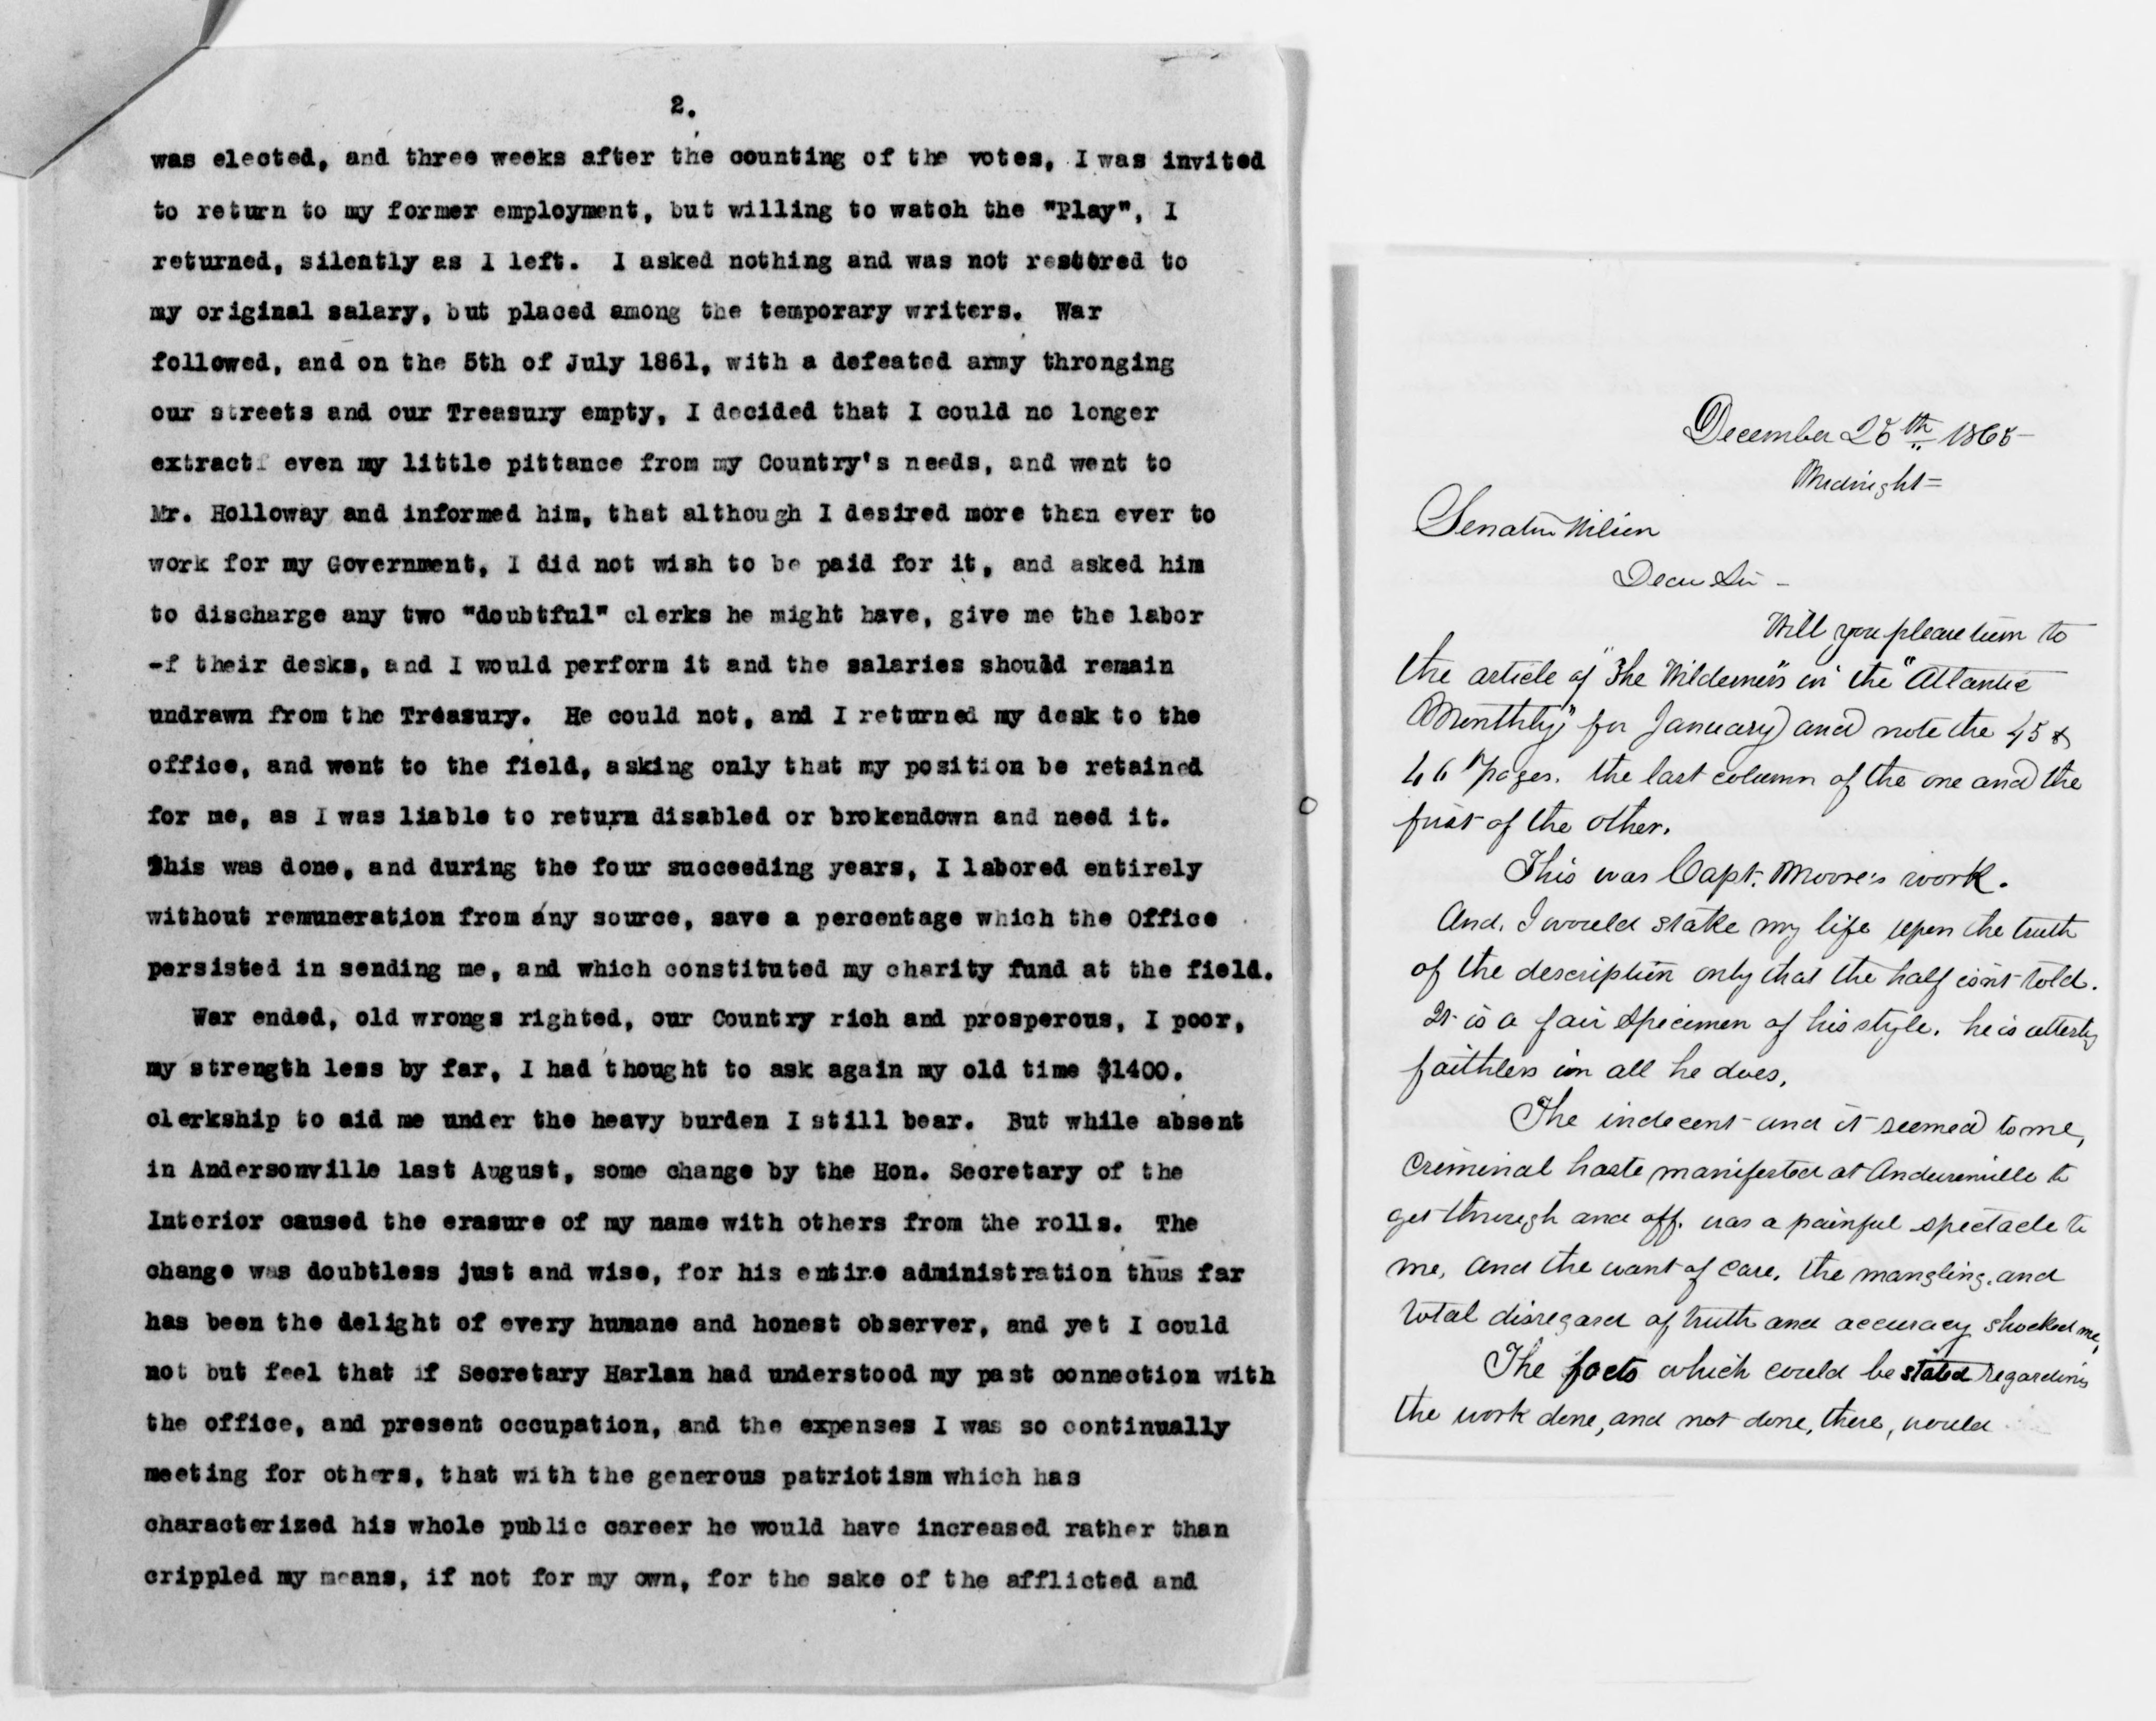 2.
was elected, and three weeks after the counting of the votes, I was invited
to return to my former employment, but willing to watch the "Play", I
returned, silently as I left. I asked nothing and was not restored to
my original salary, but placed among the temporary writers. War
followed, and on the 5th of July 1861, with a defeated army thronging
our streets and our Treasury empty, I decided that I could no longer
extract even my little pittance from my Country's needs, and went to
Mr. Holloway and informed him, that although I desired more than ever to
work for my Government, I did not wish to be paid for it, and asked him
to discharge any two "doubtful" clerks he might have, give me the labor
-f their desks, and I would perform it and the salaries should remain
undrawn from the Treasury. He could not, and I returned my desk to the
office, and went to the field, asking only that my position be retained
for me, as I was liable to return disabled or brokendown and need it.
This was done, and during the four succeeding years, I labored entirely
without remuneration from any source, save a percentage which the Office
persisted in sending me, and which constituted my charity fund at the field.
War ended, old wrongs righted, our Country rich and prosperous, I poor,
my strength less by far, I had thought to ask again my old time $1400.
clerkship to aid me under the heavy burden I still bear. But while absent
in Andersonville last August, some change by the Hon. Secretary of the
Interior caused the erasure of my name with others from the rolls. The
change was doubtless just and wise, for his entire administration thus far
has been the delight of every humane and honest observer, and yet I could
not but feel that if Secretary Harlan had understood my past connection with
the office, and present occupation, and the expenses I was so continually
meeting for others, that with the generous patriotism which has
characterized his whole public career he would have increased rather than
crippled my means, if not for my own, for the sake of the afflicted and
December th 1865-
Midnight=
Senator Wilson
Dear Sir -
Will you please turn to
the article of "The Wilderness" in the "Atlantic
Monthly" for January and note the 45 &
46 pages. the last column of the one and the
first of the other.
This was Capt. Moore's work.
And, I would stake my life upon the truth
of the description only that the half isn't told.
It is a fair specimen of his style. he is utterly
faithless in all he does,
The indecent and it seemed to me,
Criminal haste manifested at Andersonville to
get through and off. was a painful spectacle to
me, and the want of care, the mangling, and
total disregard of truth and accuracy shocked me,
The facts which could be stated regarding
the work done, and not done, there, would